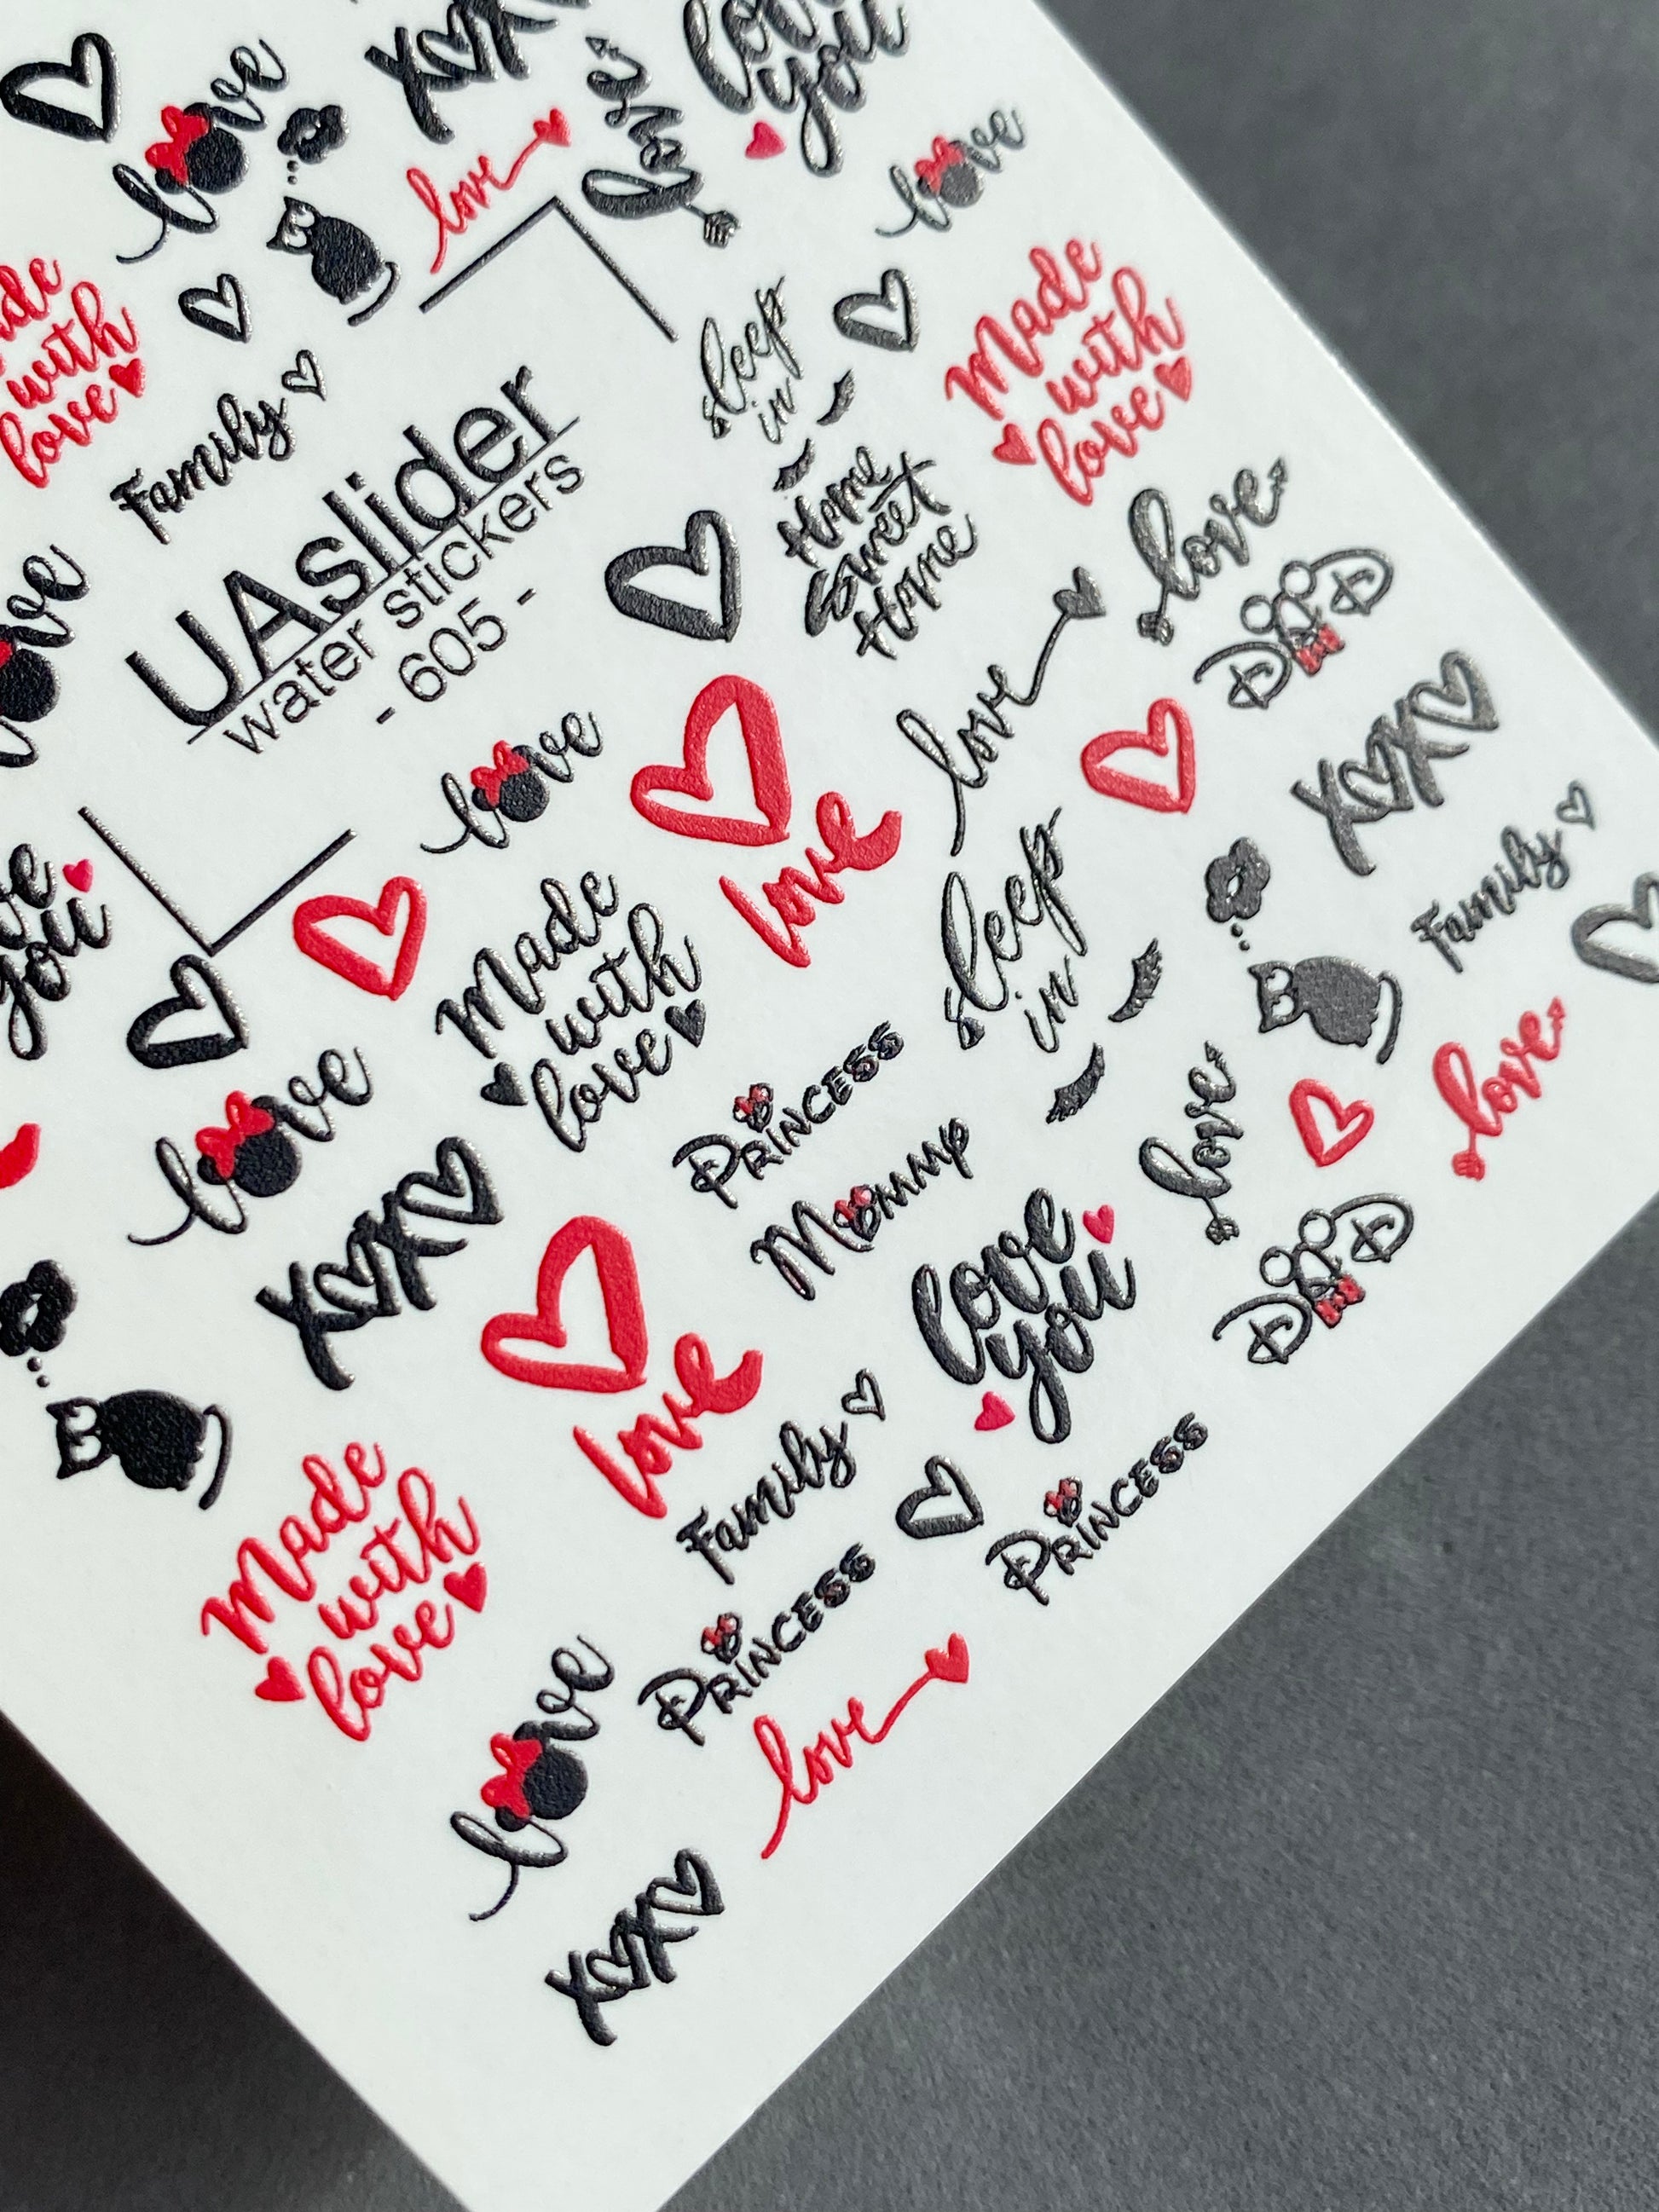 XOXO
love you
love
love
love
love
Made
with
love
sleep
in
Made
with
love
Family
UAslider
water stickers
- 605 -
Home
Sweet
Home
love
love
DAD
love
love
XOXO
love
Family
love
you
Made
with
love
sleep
in
love
love
Princess
Mommy
love
XOXO
love
you
DAD
love
Family
Made
with
love
Princess
Princess
love
love
XOXO